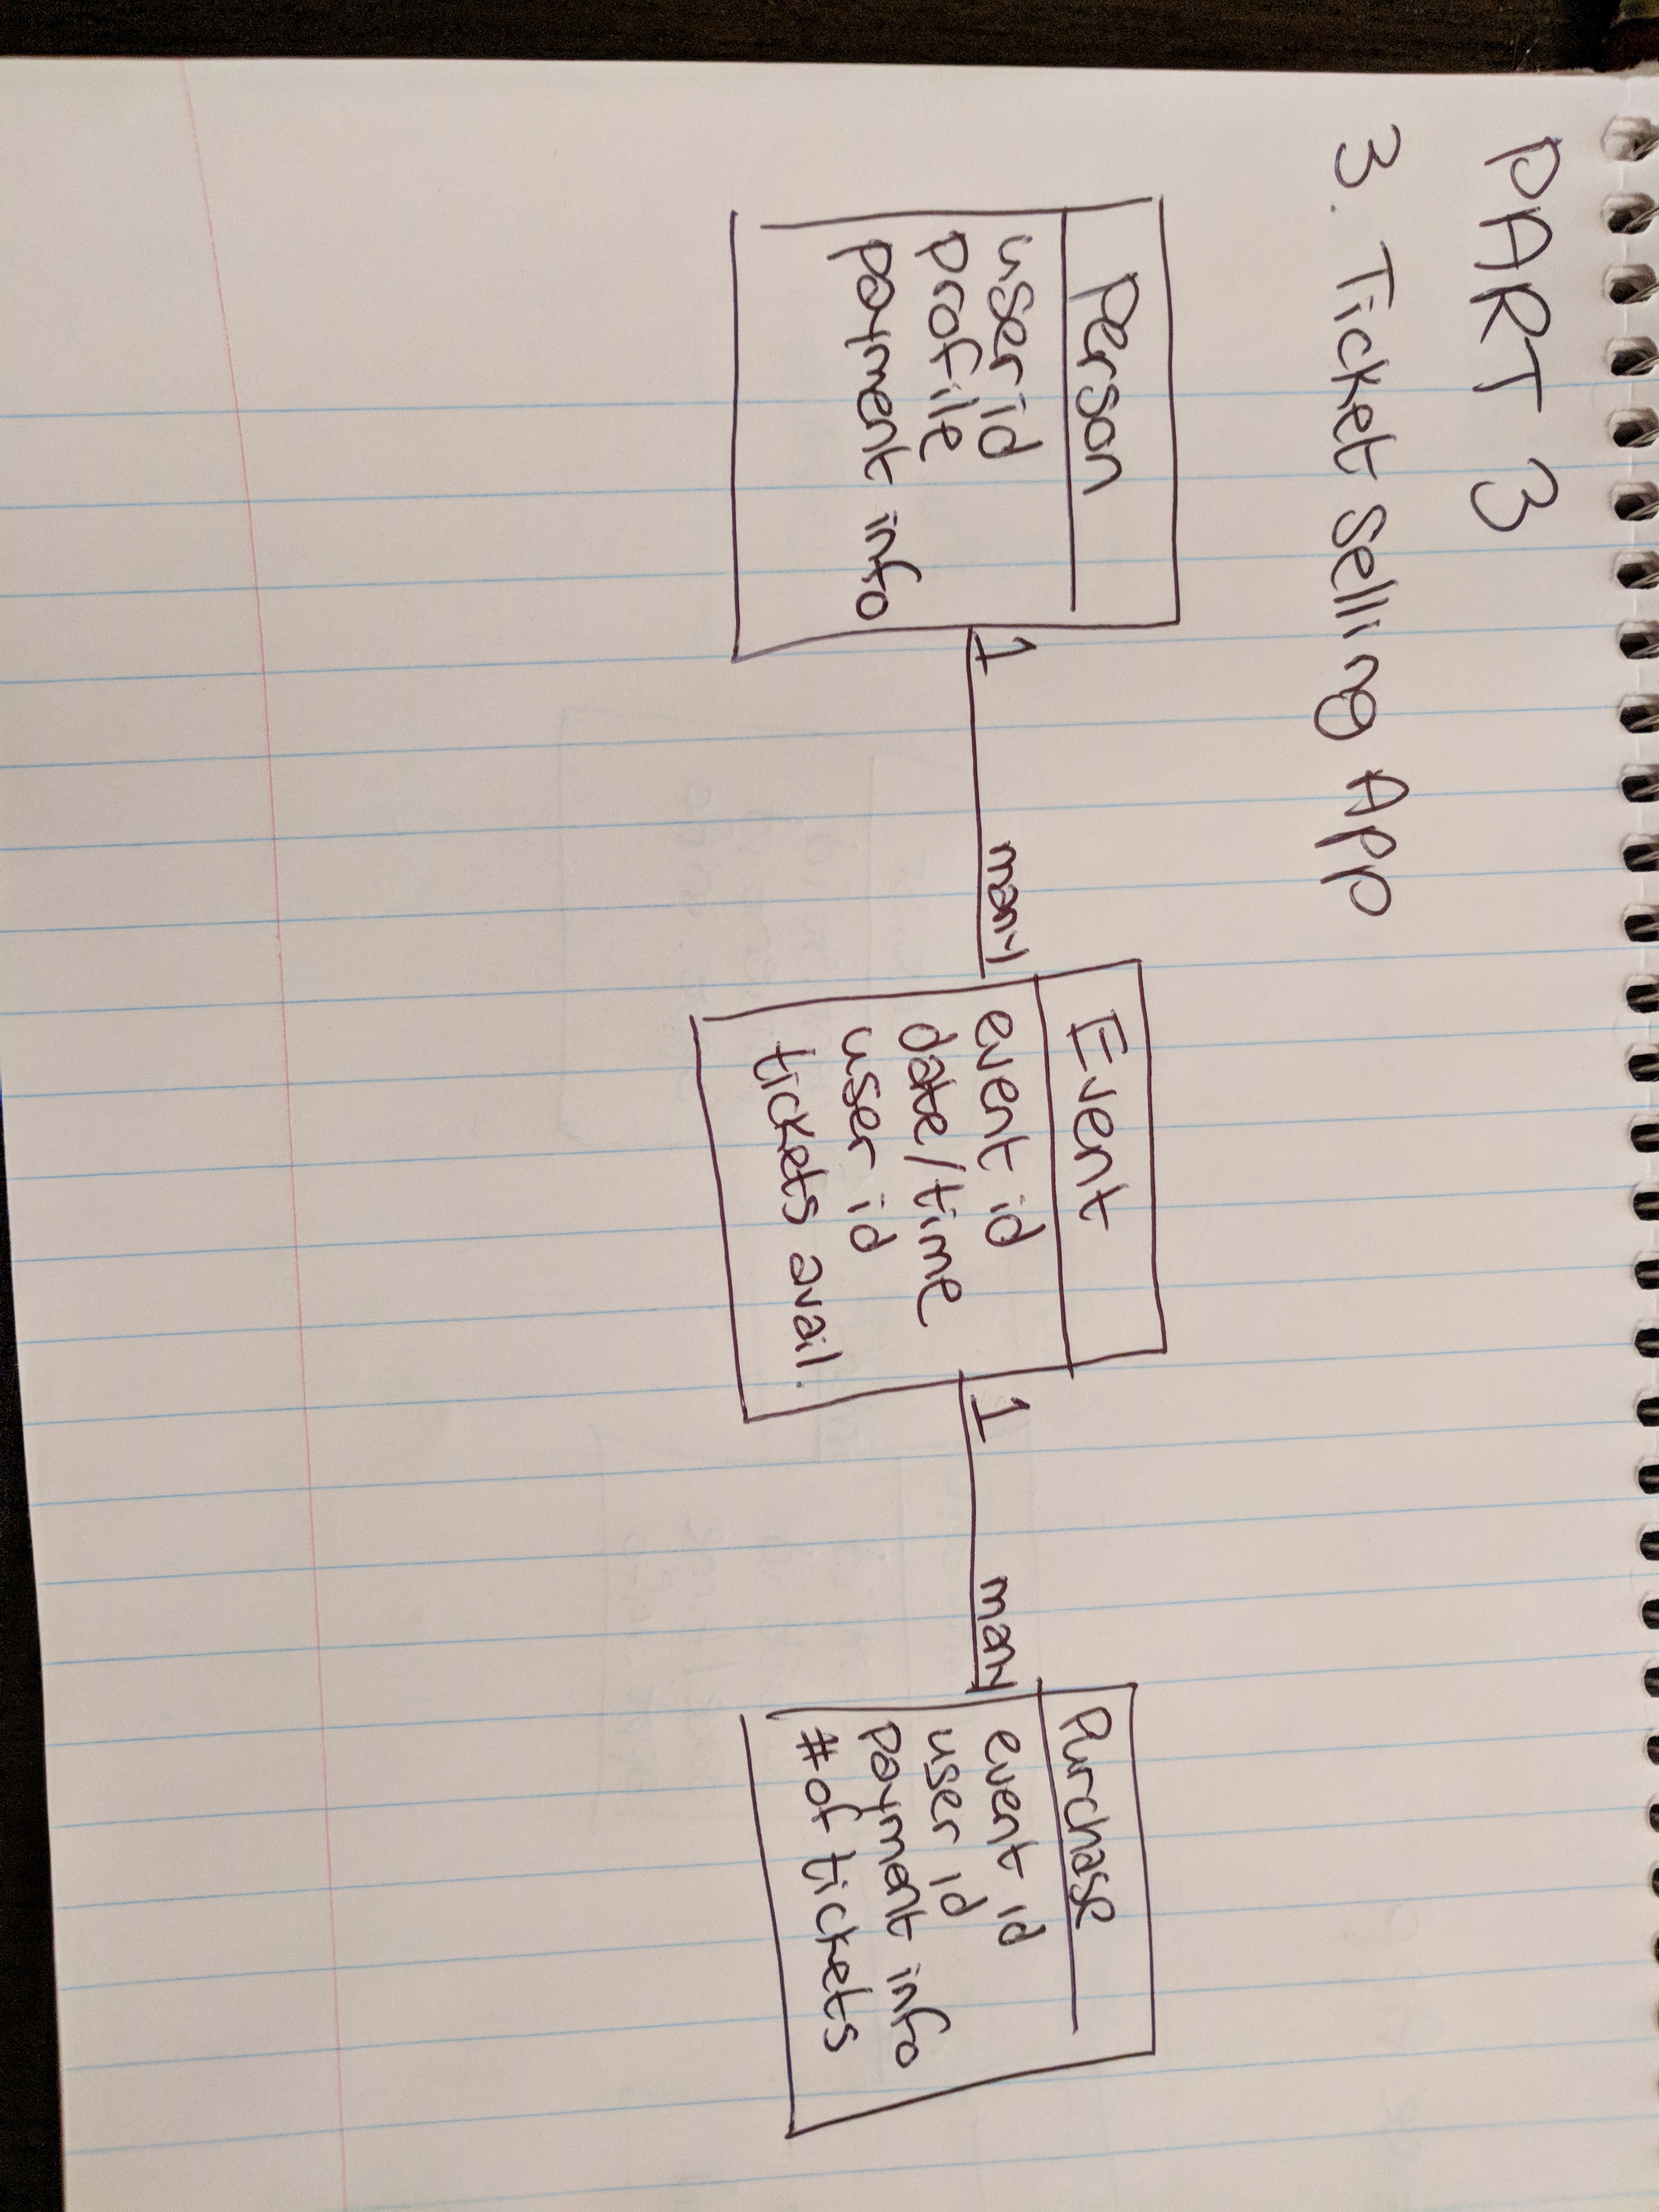 PART 3
3. Ticket Selling App
Person
user id
profile
payment info
1
many
Event
event id
date/time
user id
tickets avail.
1
many
Purchase
event id
user id
payment info
# of tickets